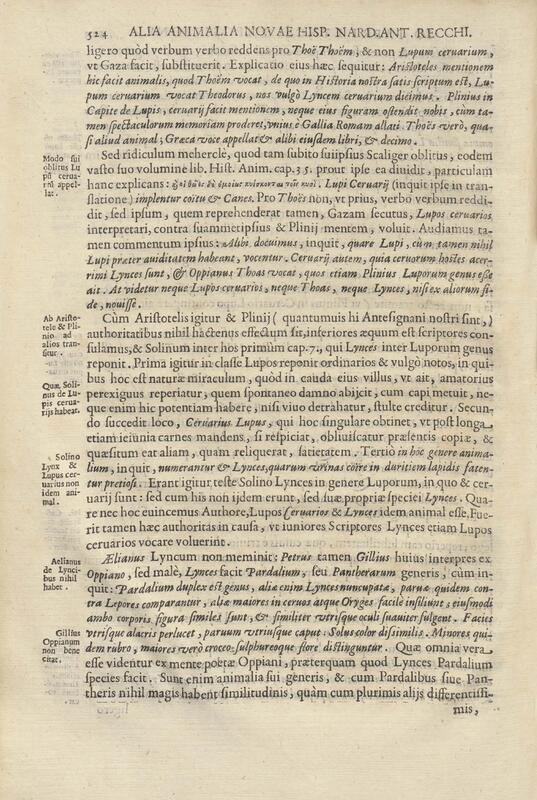 524 ALIA ANIMALIA NOVAE HISP. NARD. ANT. RECCHI.
ligero quòd verbum verbo reddens pro Thoë Thoëm, & non Lupum ceruarium,
vt Gaza facit, substituerit. Explicatio eius hæc sequitur: Aristoteles mentionem
hic facit animalis, quod Thoëm vocat, de quo in Historia nostra satis scriptum est, Lu-
pum ceruarium vocat Theodorus, nos vulgò Lyncem ceruarium dicimus. Plinius in
Capite de Lupis, ceruarij facit mentionem, neque eius figuram ostendit nobis, cùm ta-
men spectaculorum memoriam proderet, vnius è Gallia Romam allati. Thoës verò, qua-
si aliud animal; Græca voce appellat & alibi eiusdem libri, & decimo.
Modo sui
oblitus Lu
pū cerua-
riū appel-
lat.
Sed ridiculum meherclè, quod tam subito suiipsius Scaliger oblitus, eodem
vasto suo volumine lib. Hist. Anim. cap. 35. prout ipse ea diuidit, particulam
hanc explicans: Lupi Ceruarij (inquit ipse in tran-
slatione) implentur coitu & Canes. Pro Thoës non, vt prius, verbo verbum reddi-
dit, sed ipsum, quem reprehenderat tamen, Gazam secutus, Lupos ceruarios
interpretari, contra suammetipsius & Plinij mentem, voluit. Audiamus ta-
men commentum ipsius: Alibi docuimus, inquit, quare Lupi, cùm tamen nihil
Lupi præter auiditatem habeant, vocentur. Ceruarij autem, quia ceruorum hostes acer-
rimi Lynces sunt, & Oppianus Thoas vocat, quos etiam Plinius Luporum genus esse
ait. At videtur neque Lupos ceruarios, neque Thoas, neque Lynces, nisi ex aliorum fi-
de, nouisse.
Ab Aristo-
tele & Pli-
nio ad
alios tran-
situr.
Cùm Aristotelis igitur & Plinij (quantumuis hi Antesignani nostri sint,)
authoritatibus nihil hactenus effectum sit, inferiores æquum est scriptores con-
sulamus, & Solinum inter hos primùm cap. 7., qui Lynces inter Luporum genus
reponit. Prima igitur in classe Lupos reponit ordinarios & vulgò notos, in qui-
Quæ Soli-
nus de Lu-
pis cerua-
rijs habeat.
bus hoc est naturæ miraculum, quòd in cauda eius villus, vt ait, amatorius
perexiguus reperiatur, quem spontaneo damno abijcit, cum capi metuit, ne-
que enim hic potentiam habere, nisi viuo detrahatur, stulte creditur. Secun-
do succedit loco, Ceruarius Lupus, qui hoc singulare obtinet, vt post longa
etiam ieiunia carnes mandens, si respiciat, obliuiscatur præsentis copiæ, &
Solino
Lynx &
Lupus cer
uarius non
idem ani-
mal.
quæsitum eat aliam, quam reliquerat, satietatem. Tertiò in hoc genere anima-
lium, inquit, numerantur & Lynces, quarum vrinas coire in duritiem lapidis faten-
tur pretiosi. Erant igitur teste Solino Lynces in genere Luporum, in quo & cer-
uarij sunt: sed cum his non ijdem erunt, sed suæ propriæ speciei Lynces. Qua-
re nec hoc euincemus Authore, Lupos Ceruarios & Lynces idem animal esse. Fue-
rit tamen hæc authoritas in causa, vt iuniores Scriptores Lynces etiam Lupos
ceruarios vocare voluerint.
Aelianus
de Lynci-
bus nihil
habet.
Ælianus Lyncum non meminit: Petrus tamen Gillius huius interpres ex
Oppiano, sed malè, Lynces facit Pardalium, seu Pantherarum generis, cùm in-
quit: Pardalium duplex est genus, aliæ enim Lynces nuncupatæ, paruæ quidem con-
tra Lepores comparantur, aliæ maiores in ceruos atque Oryges facile insiliunt; eiusmodi
ambo corporis figura similes sunt, & similiter vtrisque oculi suauiter fulgent. Facies
Gillius
Oppianum
non bene
citat.
vtrisque alacris perlucet, paruum vtrisque caput: Solus color dissimilis. Minores qui-
dem rubro, maiores verò croceo-sulphureoque flore distinguntur. Quæ omnia vera
esse videntur ex mente poetæ Oppiani, præterquam quod Lynces Pardalium
species facit. Sunt enim animalia sui generis, & cum Pardalibus siue Pan-
theris nihil magis habent similitudinis, quàm cum plurimis alijs differentissi-
mis,